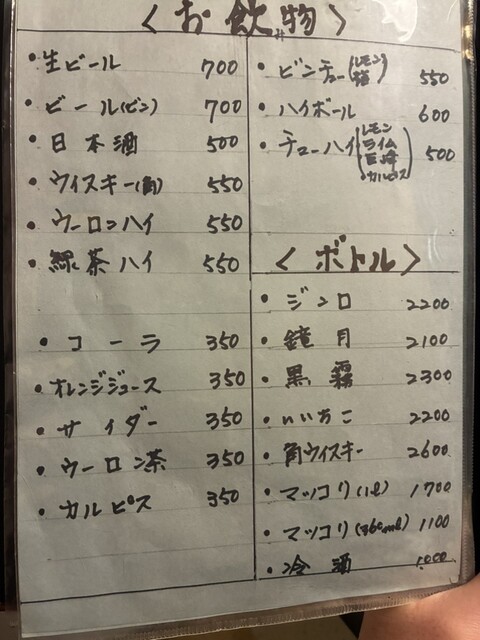 〈お飲物〉
・生ビール 700
・ビール(ビン) 700
・日本酒 500
・ウィスキー(角) 550
・ウーロンハイ 550
・緑茶ハイ 550
・コーラ 350
・オレンジジュース 350
・サイダー 350
・ウーロン茶 350
・カルピス 350
・ビンチュー(レモン 550
・ハイボール 600
・チューハイ(レモン ライム 巨峰 カルピス) 500
〈ボトル〉
・ジンロ 2200
・鏡月 2100
・黒霧 2300
・いいちこ 2200
・角ウイスキー 2600
・マッコリ(1ℓ) 1700
・マッコリ(360ml) 1100
・冷酒 1000